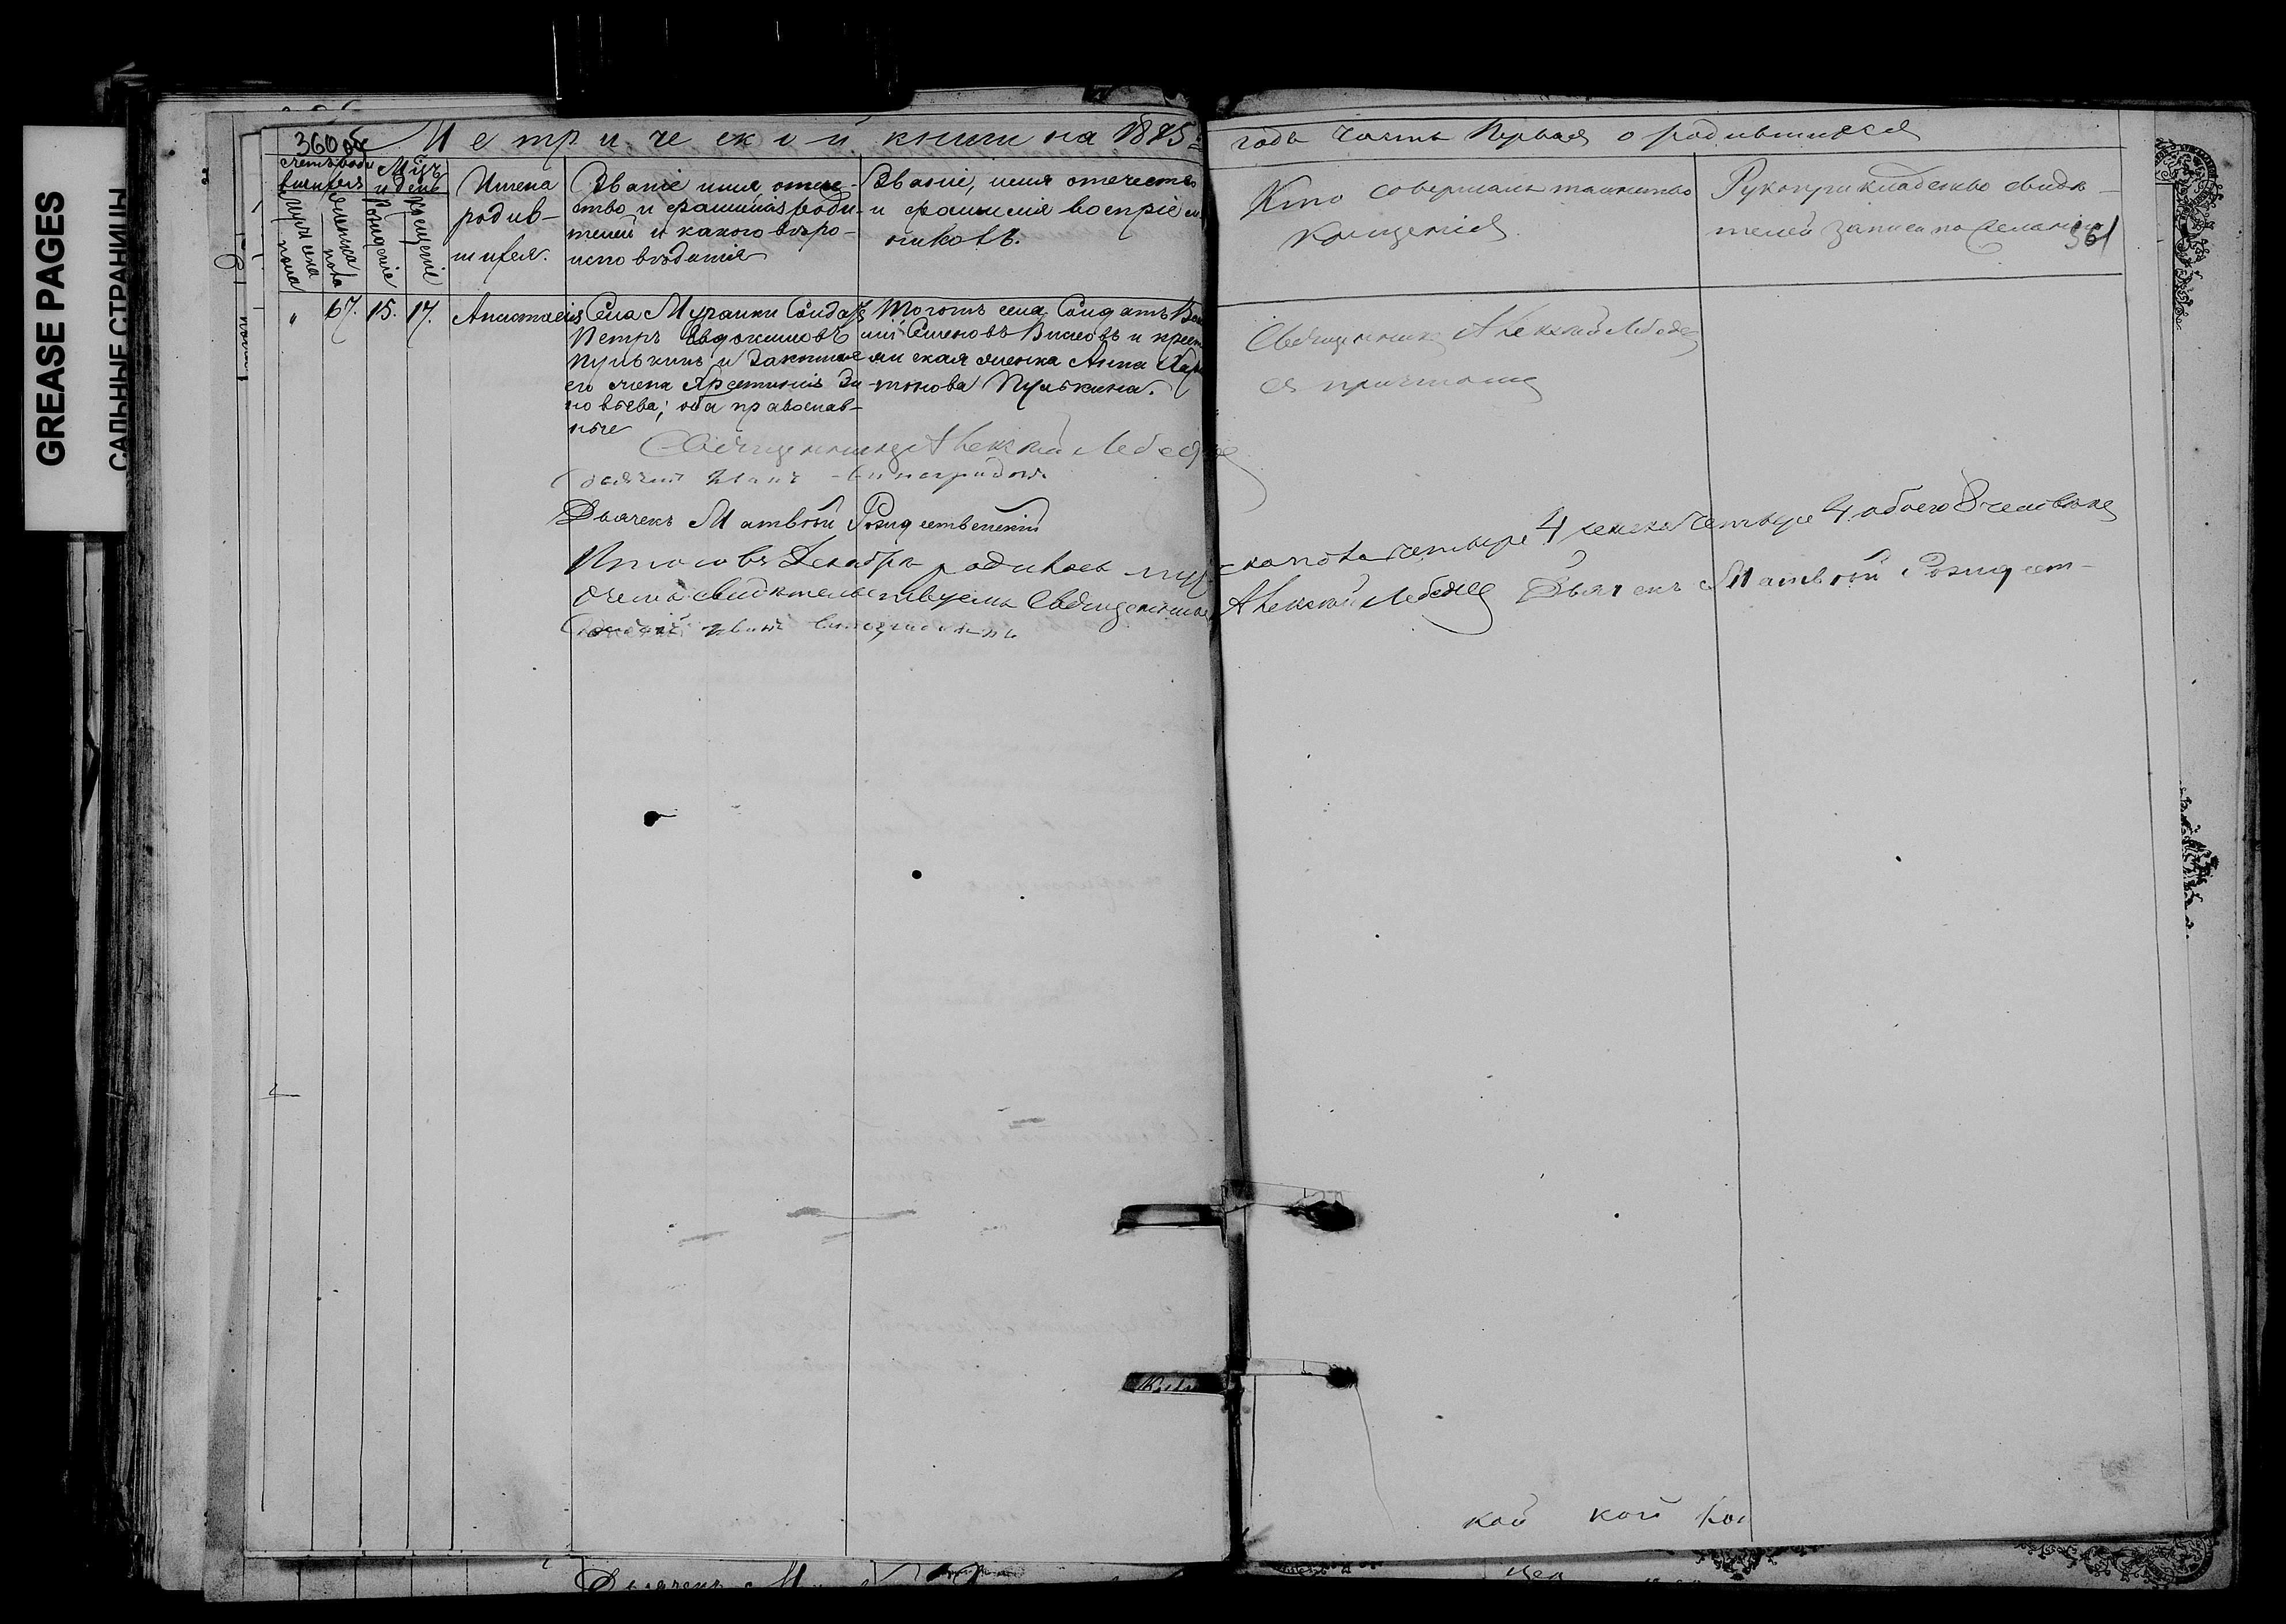 GREASE PAGES
САЛЬНЫЕ СТРАНИЦЫ
360 об
Метрической книги на 1875
года часть первая о родившихся
Счетъ родившихся
Мѣсяцъ и день
мужеска пола
женска пола
рожденіе
крещеніе
Имена
родив-
шихся.
Званіе имя, отече-
ство и фамилія роди-
телей и какого вѣро-
исповѣданія
Званіе, имя отечество
и фамилія воспріем-
никовъ.
Кто совершалъ таинство
крещенія
Рукоприкладство свидѣ-
телей записи по желанію
361
" 67. 15. 17. Анистасія
Села Муранки Солдатъ
Петръ Евдокимовъ
Пулькинъ и Законная
его жена Ирсентинія Зи
новьева; оба православ-
ные
Тогожъ села Солдатъ
Семеновъ и крест
янская женка Анна Хари
тонова Пулькина.
Священникъ Алексѣй Лебедев
съ причтомъ
Священникъ Алексѣй Лебедев
Иванъ Виноградовъ
Дьячекъ Матвѣй Рождественскій
Итого въ Декабрѣ родилось муж-
каго пола четыре 4 женска четыре 4 обоего 8 человѣкъ
О чемъ свидѣтельствуемъ Священникъ
Алексѣй Лебедев Дьячекъ Матвѣй Рождест-
Иванъ Виноградовъ
кой кой ко
Дьячекъ